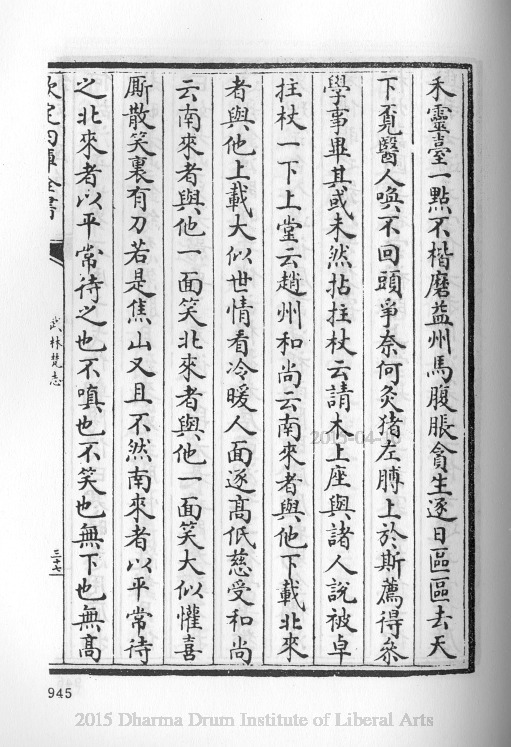 禾靈臺一點不楷磨益州馬腹脹貪生逐日區區去天
下覔醫人喚不回頭爭奈何灸猪左膊上於斯薦得叅
學事畢其或未然拈拄杖云請木上座與諸人說被卓
拄杖一下上堂云趙州和尚云南來者與他下載北來
者與他上載大似世情看冷暖人面逐髙低慈受和尚
云南來者與他一面笑北來者與他一面笑大似懽喜
厮散笑裏有刀若是焦山又且不然南來者以平常待
之北來者以平常待之也不嗔也不笑也無下也無髙
欽定四庫全書
武林梵志
三十七
945
2015-04-
2015 Dharma Drum Institute of Liberal Arts